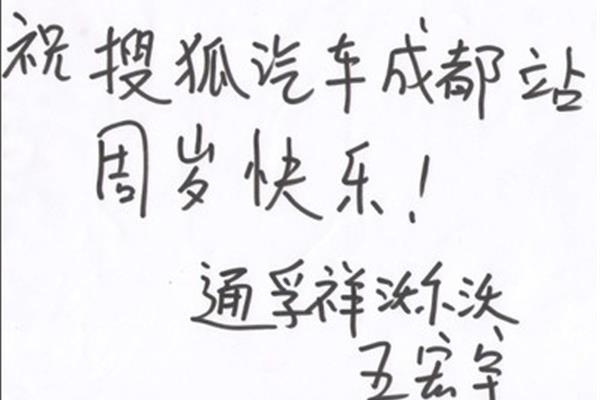 祝搜狐汽车成都站
周岁快乐！
通孚祥沃尔沃